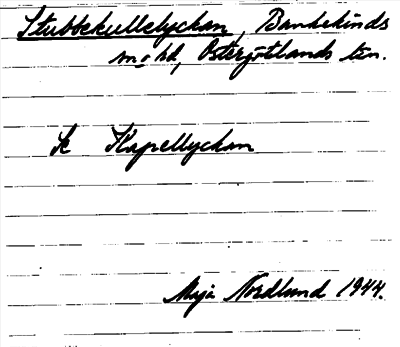 Stubbekullelyckan, Bankekinds
sn o hd, Östergötlands län.
Se Kapellyckan
Maja Nordlund 1944.